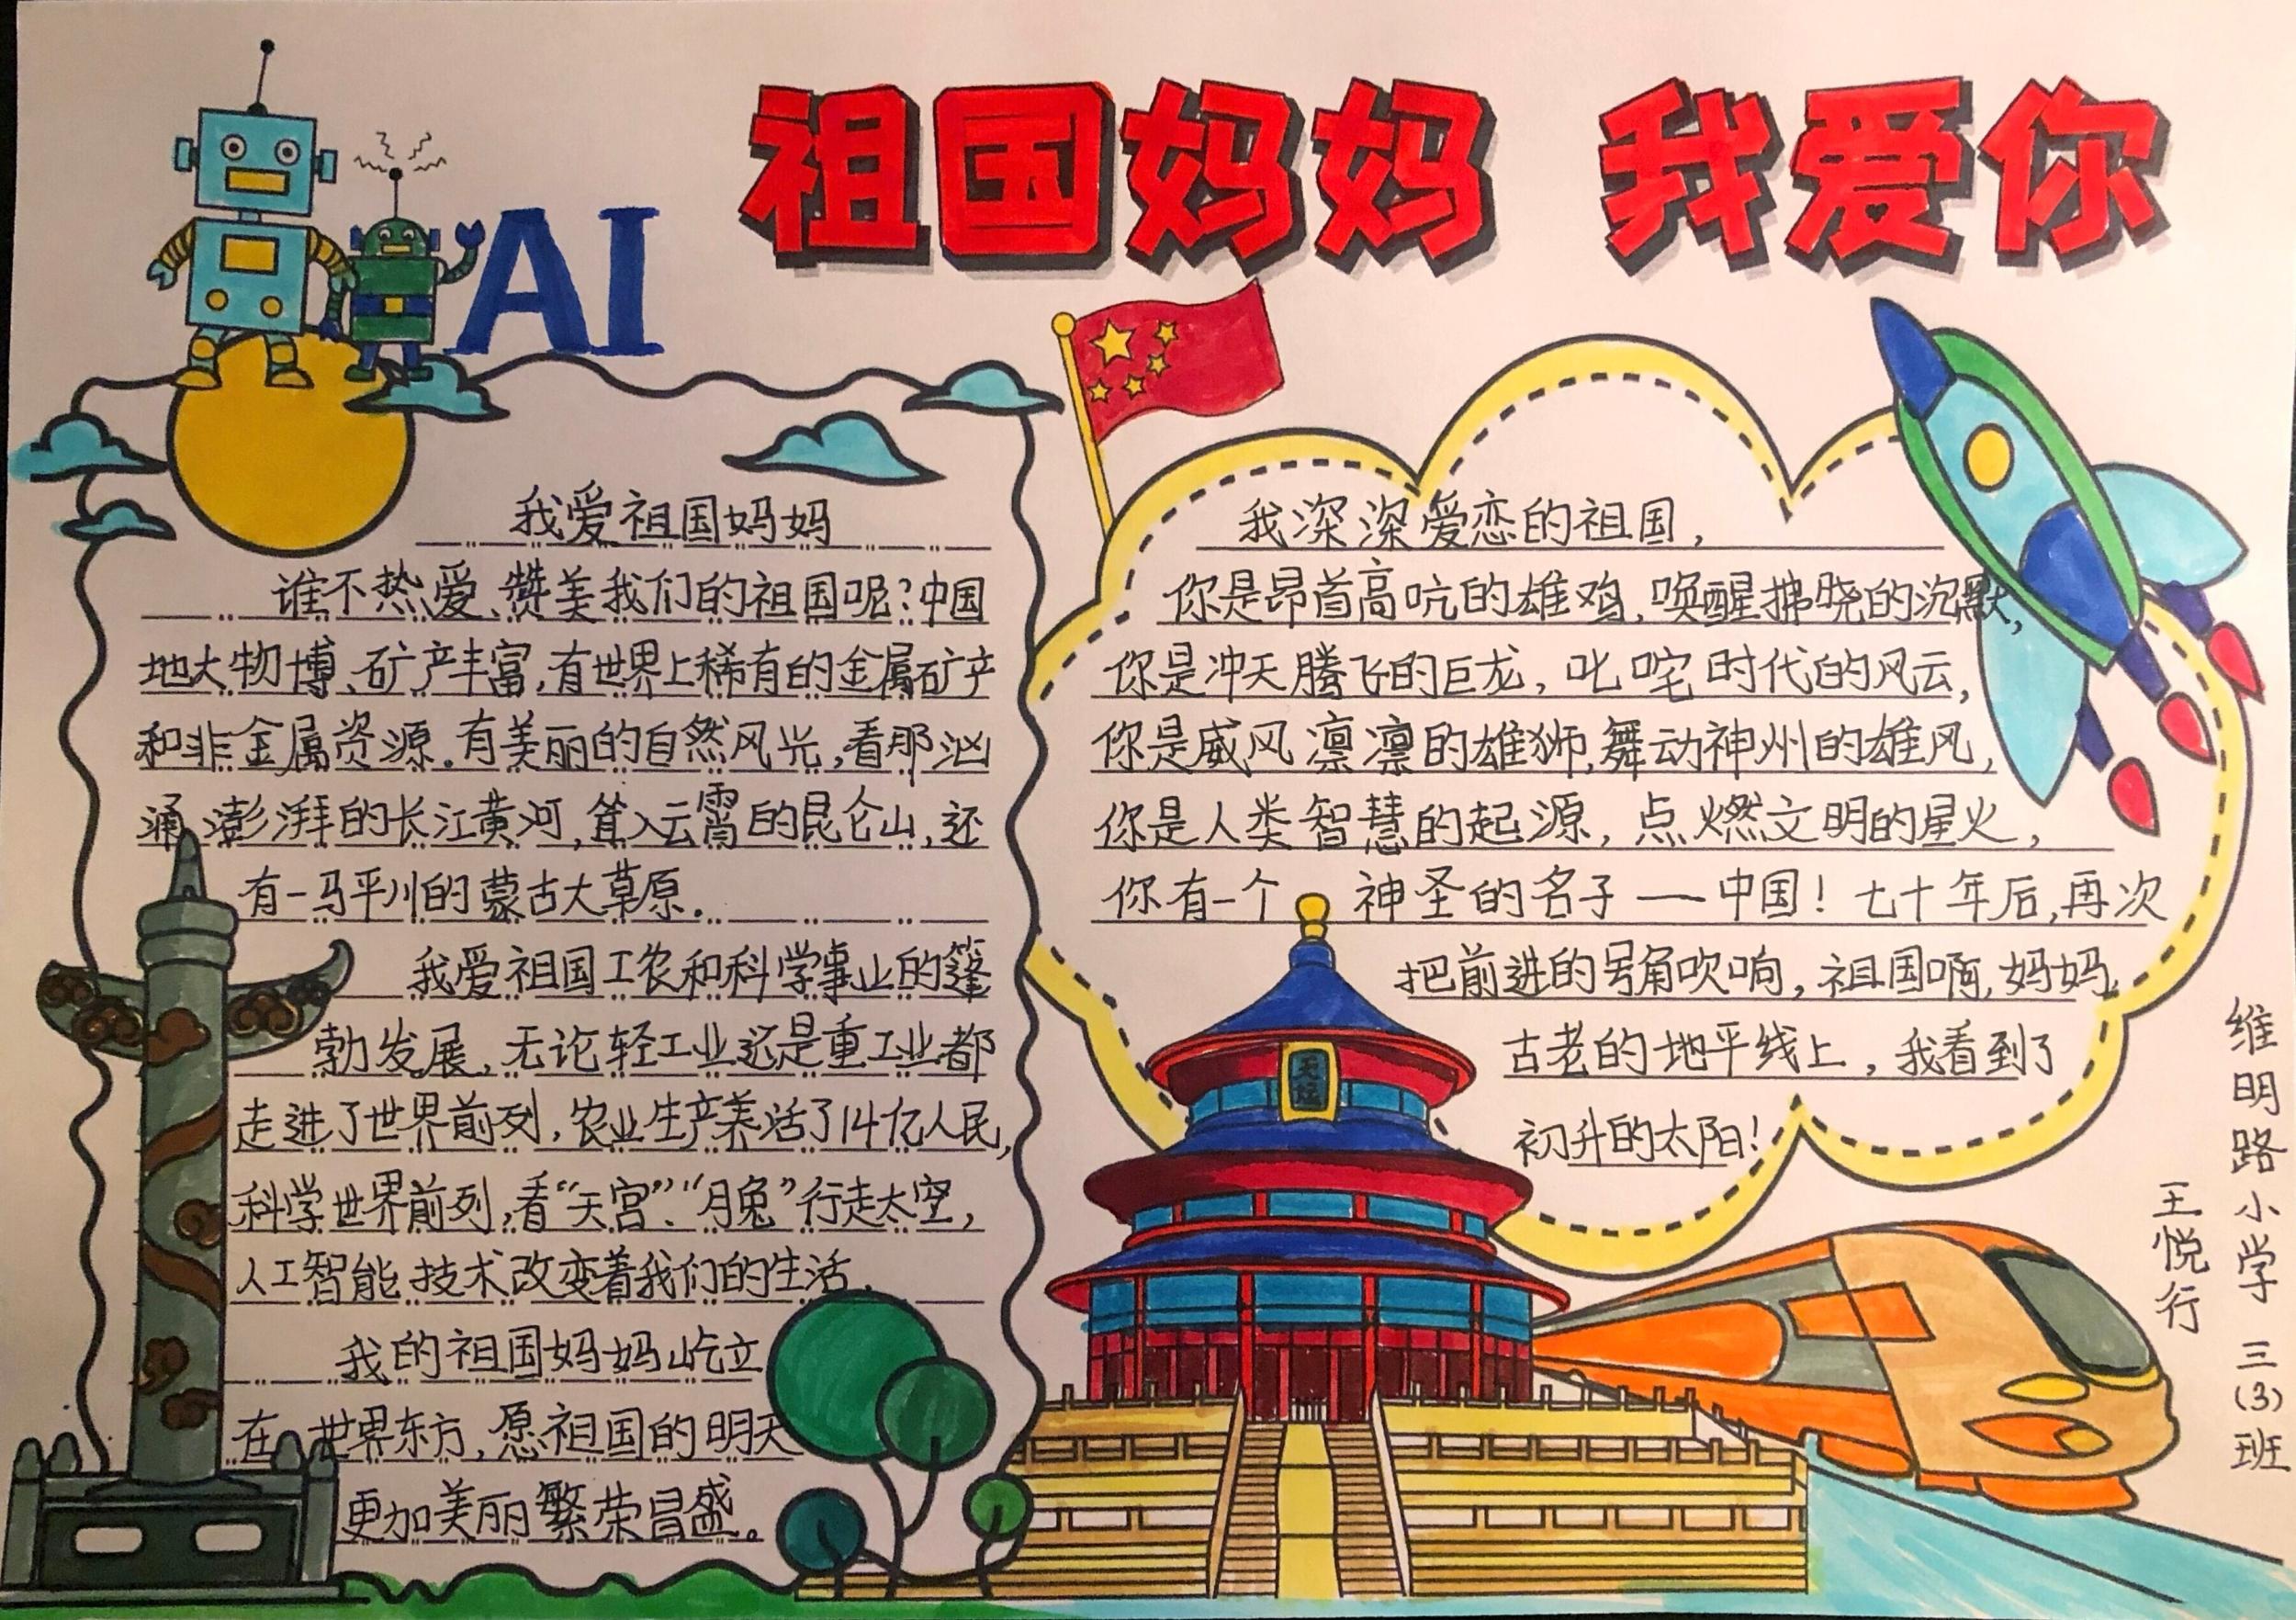 祖国妈妈 我爱你
AI
我爱祖国妈妈
谁不热爱、赞美我们的祖国呢?中国
地大物博、矿产丰富,有世界上稀有的金属矿产
和非金属资源.有美丽的自然风光,看那汹
涌澎湃的长江黄河,耸入云霄的昆仑山,还
有一马平川的蒙古大草原.
我爱祖国工农和科学事业的篷
勃发展,无论轻工业还是重工业都
走进了世界前列,农业生产养活了14亿人民,
科学世界前列,看“天宫”、“月兔”行走太空,
人工智能技术改变着我们的生活.
我的祖国妈妈屹立
在世界东方,愿祖国的明天
更加美丽繁荣昌盛。
我深深爱恋的祖国,
你是昂首高吭的雄鸡,唤醒拂晓的沉默,
你是冲天腾飞的巨龙,叱咤时代的风云,
你是威风凛凛的雄狮,舞动神州的雄风,
你是人类智慧的起源,点燃文明的星火,
你有一个神圣的名子—中国!七十年后,再次
把前进的号角吹响,祖国啊,妈妈,
古老的地平线上,我看到了
初升的太阳!
天坛
维明路小学 三(3)班
王悦行